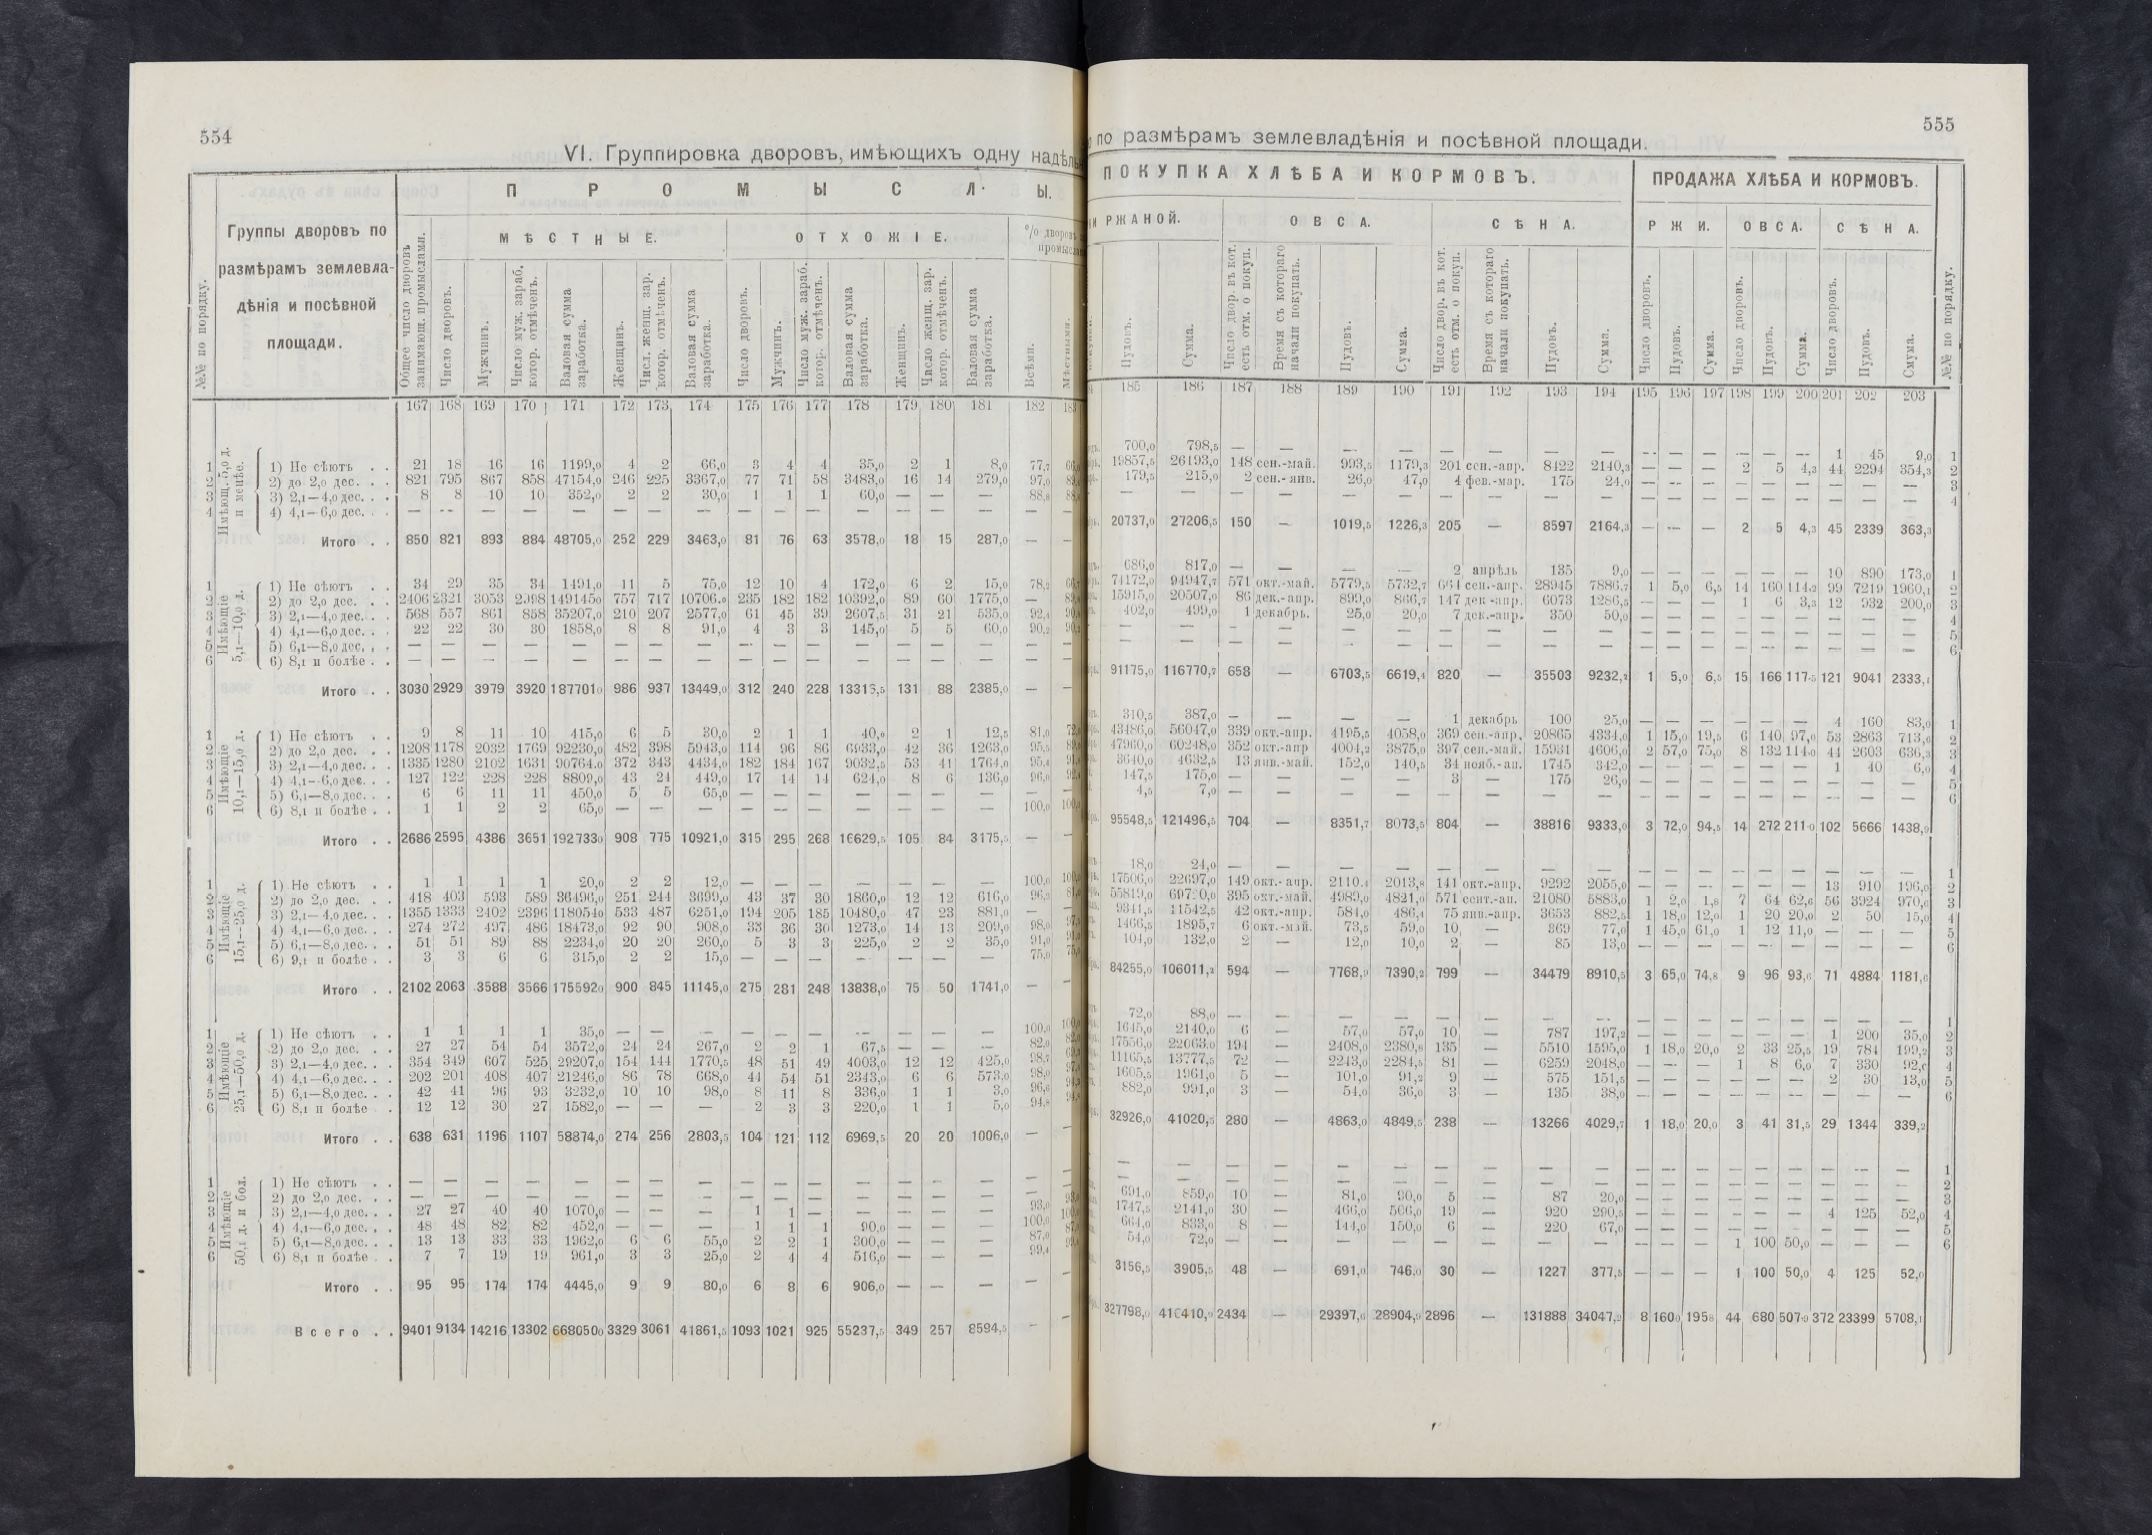 554
VI. Группировка дворовъ, имѣющихъ одну надѣль
П Р О М Ы С Л Ы.
Группы дворовъ по размѣрамъ землевладѣнія и посѣвной площади.
М Ѣ С Т Н Ы Е.
О Т Х О Ж І Е.
№№ по порядку.
Общее число дворовъ занимающ. промыслами.
Число дворовъ.
Мужчинъ.
Число муж. зараб. котор. отмѣченъ.
Валовая сумма заработка.
Женщинъ.
Числ. женщ. зар. котор. отмѣченъ.
Валовая сумма заработка.
Число дворовъ.
Мужчинъ.
Число муж. зараб. котор. отмѣченъ.
Валовая сумма заработка.
Женщинъ.
Число женщ. зар. котор. отмѣченъ.
Валовая сумма заработка.
Всѣми.
167 168 169 170 171 172 173 174 175 176 177 178 179 180 181 182
Имѣющ. 5,0 д. и менѣе.
1 1) Не сѣютъ . . 21 18 16 16 1199,0 4 2 66,0 3 4 4 35,0 2 1 8,0 77,7
2 2) до 2,0 дес. . . 821 795 867 858 47154,0 246 225 3367,0 77 71 58 3483,0 16 14 279,0 97,0
3 3) 2,1—4,0 дес. . . 8 8 10 10 352,0 2 2 30,0 1 1 1 60,0 — — — 88,8
4 4) 4,1—6,0 дес. . . — — — — — — — — — — — — — — — —
Итого . . 850 821 893 884 48705,0 252 229 3463,0 81 76 63 3578,0 18 15 287,0 — —
Имѣющіе 5,1—10,0 д.
1 1) Не сѣютъ . . 34 29 35 34 1491,0 11 5 75,0 12 10 4 172,0 6 2 15,0 78,2
2 2) до 2,0 дес. . . 2406 2321 3053 2998 149145,0 757 717 10706,0 235 182 182 10392,0 89 60 1775,0 —
3 3) 2,1—4,0 дес. . . 568 557 861 858 35207,0 210 207 2577,0 61 45 39 2607,5 31 21 535,0 92,4
4 4) 4,1—6,0 дес. . . 22 22 30 30 1858,0 8 8 91,0 4 3 3 145,0 5 5 60,0 90,2
5 5) 6,1—8,0 дес. . . — — — — — — — — — — — — — — — —
6 6) 8,1 и болѣе . . — — — — — — — — — — — — — — — —
Итого . . 3030 2929 3979 3920 187701,0 986 937 13449,0 312 240 228 13316,5 131 88 2385,0 — —
Имѣющіе 10,1—15,0 д.
1 1) Не сѣютъ . . 9 8 11 10 415,0 6 5 30,0 2 1 1 40,0 2 1 12,5 81,0
2 2) до 2,0 дес. . . 1208 1178 2032 1769 92230,0 482 398 5943,0 114 96 86 6933,0 42 36 1263,0 95,5
3 3) 2,1—4,0 дес. . . 1335 1280 2102 1631 90764,0 372 343 4434,0 182 184 167 9032,5 53 41 1764,0 95,4
4 4) 4,1—6,0 дес. . . 127 122 228 228 8809,0 43 24 449,0 17 14 14 624,0 8 6 136,0 96,0
5 5) 6,1—8,0 дес. . . 6 6 11 11 450,0 5 5 65,0 — — — — — — —
6 6) 8,1 и болѣе . . 1 1 2 2 65,0 — — — — — — — — — — 100,0
Итого . . 2686 2595 4386 3651 192733,0 908 775 10921,0 315 295 268 16629,5 105 84 3175,5 — —
Имѣющіе 15,1—25,0 д.
1 1) Не сѣютъ . . 1 1 1 1 20,0 2 2 12,0 — — — — — — — 100,0
2 2) до 2,0 дес. . . 418 403 593 589 36496,0 251 244 3699,0 43 37 30 1860,0 12 12 616,0 96,3
3 3) 2,1—4,0 дес. . . 1355 1333 2402 2396 118054,0 533 487 6251,0 194 205 185 10480,0 47 23 881,0 —
4 4) 4,1—6,0 дес. . . 274 272 497 486 18473,0 92 90 908,0 33 36 30 1273,0 14 13 209,0 98,0
5 5) 6,1—8,0 дес. . . 51 51 89 88 2234,0 20 20 260,0 5 3 3 225,0 2 2 35,0 91,0
6 6) 9,1 и болѣе . . 3 3 6 6 315,0 2 2 15,0 — — — — — — — 75,0
Итого . . 2102 2063 3588 3566 175592,0 900 845 11145,0 275 281 248 13838,0 75 50 1741,0 — —
Имѣющіе 25,1—50,0 д.
1 1) Не сѣютъ . . 1 1 1 1 35,0 — — — — — — — — — — 100,0
2 2) до 2,0 дес. . . 27 27 54 54 3572,0 24 24 267,0 2 2 1 67,5 — — — 82,0
3 3) 2,1—4,0 дес. . . 354 349 607 525 29207,0 154 144 1770,5 48 51 49 4003,0 12 12 425,0 98,7
4 4) 4,1—6,0 дес. . . 202 201 408 407 21246,0 86 78 668,0 44 54 51 2343,0 6 6 573,0 98,0
5 5) 6,1—8,0 дес. . . 42 41 96 93 3232,0 10 10 98,0 8 11 8 336,0 1 1 3,0 96,6
6 6) 8,1 и болѣе . 12 12 30 27 1582,0 — — — 2 3 3 220,0 1 1 5,0 94,8
Итого . . 638 631 1196 1107 58874,0 274 256 2803,5 104 121 112 6969,5 20 20 1006,0 — —
Имѣющіе 50,1 д. и бол.
1 1) Не сѣютъ . . — — — — — — — — — — — — — — —
2 2) до 2,0 дес. . . — — — — — — — — — — — — — — —
3 3) 2,1—4,0 дес. . . 27 27 40 40 1070,0 — — — 1 1 — — — — — 93,0
4 4) 4,1—6,0 дес. . . 48 48 82 82 452,0 — — — 1 1 1 90,0 — — — 100,0
5 5) 6,1—8,0 дес. . . 13 13 33 33 1962,0 6 6 55,0 2 2 1 300,0 — — — 87,0
6 6) 8,1 и болѣе . . 7 7 19 19 961,0 3 3 25,0 2 4 4 516,0 — — — 99,4
Итого . . 95 95 174 174 4445,0 9 9 80,0 6 8 6 906,0 — — — — —
Всего . . 9401 9134 14216 13302 668050,0 3329 3061 41861,5 1093 1021 925 55237,5 349 257 8594,5 — —
555
по размѣрамъ землевладѣнія и посѣвной площади.
ПОКУПКА ХЛѢБА И КОРМОВЪ.
ПРОДАЖА ХЛѢБА И КОРМОВЪ.
РЖАНОЙ.
О В С А.
С Ѣ Н А.
Р Ж И.
О В С А.
С Ѣ Н А.
Пудовъ.
Сумма.
Число двор. въ кот. есть отм. о покуп.
Время съ котораго начали покупать.
Пудовъ.
Сумма.
Число двор. въ кот. есть отм. о покуп.
Время съ котораго начали покупать.
Пудовъ.
Сумма.
Число дворовъ.
Пудовъ.
Сумма.
Число дворовъ.
Пудовъ.
Сумма.
Число дворовъ.
Пудовъ.
Смума.
№№ по порядку.
185 186 187 188 189 190 191 192 193 194 195 196 197 198 199 200 201 202 203
700,0 798,5 — — — — — — — — — — — — — — 1 45 9,0 1
19857,5 26193,0 148 сен.-май. 993,5 1179,3 201 сен.-апр. 8422 2140,3 — — — 2 5 4,3 44 2294 354,3 2
179,5 215,0 2 сен.-янв. 26,0 47,0 4 фев.-мар. 175 24,0 — — — — — — — — — 3
— — — — — — — — — — — — — — — — — — — 4
20737,0 27206,5 150 — 1019,5 1226,3 205 — 8597 2164,3 — — — 2 5 4,3 45 2339 363,3
686,0 817,0 — — — — 2 апрѣль 135 9,0 — — — — — — 10 890 173,0 1
74172,0 94947,7 571 окт.-май. 5779,5 5732,7 664 сен.-апр. 28945 7886,7 1 5,0 6,5 14 160 114,2 99 7219 1960,1 2
15915,0 20507,0 86 дек.-апр. 899,0 866,7 147 дек.-апр. 6073 1286,5 — — — 1 6 3,3 12 932 200,0 3
402,0 499,0 1 декабрь. 25,0 20,0 7 дек.-апр. 350 50,0 — — — — — — — — — 4
— — — — — — — — — — — — — — — — — — — 5
— — — — — — — — — — — — — — — — — — — 6
91175,0 116770,7 658 — 6703,5 6619,4 820 — 35503 9232,2 1 5,0 6,5 15 166 117,5 121 9041 2333,1
310,5 387,0 — — — — 1 декабрь 100 25,0 — — — — — — 4 160 83,0 1
43486,0 56047,0 339 окт.-апр. 4195,5 4058,0 369 сен.-апр. 20865 4334,0 1 15,0 19,5 6 140 97,0 53 2863 713,0 2
47960,0 60248,0 352 окт.-апр 4004,2 3875,0 397 сен.-май. 15931 4606,0 2 57,0 75,0 8 132 114,0 44 2603 636,3 3
3640,0 4632,5 13 янв.-май. 152,0 140,5 34 нояб.-ап. 1745 342,0 — — — — — — 1 40 6,0 4
147,5 175,0 — — — — 3 — 175 26,0 — — — — — — — — — 5
4,5 7,0 — — — — — — — — — — — — — — — — — 6
95548,5 121496,5 704 — 8351,7 8073,5 804 — 38816 9333,0 3 72,0 94,5 14 272 211,0 102 5666 1438,9
18,0 24,0 — — — — — — — — — — — — — — — — — 1
17506,0 22697,0 149 окт.-апр. 2110,4 2013,8 141 окт.-апр. 9292 2055,0 — — — — — — 13 910 196,0 2
55819,0 395 окт.-май. 4989,0 4821,0 571 сент.-ап. 21080 5883,0 1 2,0 1,8 7 64 62,6 56 3924 970,6 3
9341,5 11542,5 42 окт.-апр. 584,0 486,4 75 янв.-апр. 3653 882,5 1 18,0 12,0 1 20 20,0 2 50 15,0 4
1466,5 1895,7 6 окт.-май. 73,5 59,0 10 — 369 77,0 1 45,0 61,0 1 12 11,0 — — — 5
104,0 132,0 2 — 12,0 10,0 2 — 85 13,0 — — — — — — — — — 6
84255,0 106011,2 594 — 7768,9 7390,2 799 — 34479 8910,5 3 65,0 74,8 9 96 93,6 71 4884 1181,6
72,0 88,0 — — — — — — — — — — — — — — — — — 1
1645,0 2140,0 6 — 57,0 57,0 10 — 787 197,2 — — — — — — 1 200 35,0 2
17556,0 22063,0 194 — 2408,0 2380,8 135 — 5510 1595,0 1 18,0 20,0 2 33 25,5 19 784 199,2 3
11165,5 13777,5 72 — 2243,0 2284,5 81 — 6259 2048,0 — — — 1 8 6,0 7 330 4
1605,5 1961,0 5 — 101,0 91,2 9 — 575 151,5 — — — — — — 2 30 13,0 5
882,0 991,0 3 — 54,0 36,0 3 — 135 38,0 — — — — — — — — — 6
32926,0 41020,5 280 — 4863,0 4849,5 238 — 13266 4029,7 1 18,0 20,0 3 41 31,5 29 1344 339,2
— — — — — — — — — — — — — — — — — — — 1
— — — — — — — — — — — — — — — — — — — 2
691,0 859,0 10 — 81,0 90,0 5 — 87 20,0 — — — — — — — — — 3
1747,5 2141,0 30 — 466,0 506,0 19 — 920 290,5 — — — — — — 4 125 52,0 4
664,0 833,0 8 — 144,0 150,0 6 — 220 67,0 — — — — — — — — — 5
54,0 72,0 — — — — — — — — — — — 1 100 50,0 — — — 6
3156,5 3905,5 48 — 691,0 746,0 30 — 1227 377,5 — — — 1 100 50,0 4 125 52,0
327798,0 416410,9 2434 — 29397,6 28904,9 2896 — 131888 34047,2 8 160,0 195,8 44 680 507,0 372 23399 5708,1